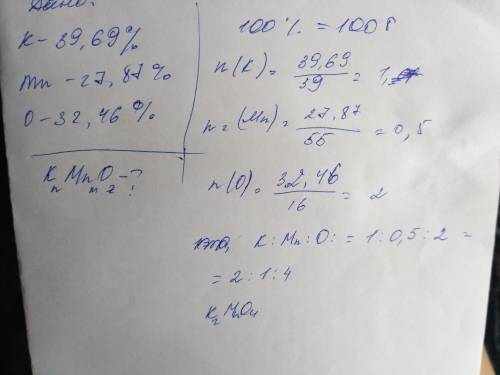 Дано:
K – 39,69%
Mn – 27,87%
O – 32,46%
KnMnmOz – ?
100% = 100г
n(K) = 39,69/39 = 1,
n = (Mn) = 27,87/55 = 0,5
n(O) = 32,46/16 = 2
K : Mn : O : = 1 : 0,5 : 2 =
= 2 : 1 : 4
K2MnO4